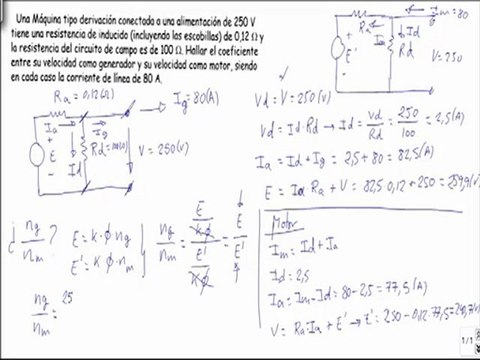 Una Máquina tipo derivación conectada a una alimentación de 250 V
tiene una resistencia de inducido (incluyendo las escobillas) de 0,12 Ω y
la resistencia del circuito de campo es de 100 Ω. Hallar el coeficiente
entre su velocidad como generador y su velocidad como motor, siendo
en cada caso la corriente de línea de 80 A.
Im=80
Ia
Id
Rd
E'
V=250
Ra=0,12(Ω)
Ig=80(A)
Ia
Ig
E
Rd=100(Ω)
Id
V=250(V)
Vd=V=250(V)
Vd=Id·Rd → Id=Vd/Rd=250/100=2,5(A)
Ia=Id+Ig=2,5+80=82,5(A)
E=Ia Ra+V=82,5·0,12+250=259,9(V)
¿ng/nm?
E=k·ϕ·ng
E'=k·ϕ·nm
ng/nm=(E/kϕ)/(E'/kϕ)=E/E'
ng/nm=25
Motor
Im=Id+Ia
Id=2,5
Ia=Im-Id=80-2,5=77,5(A)
V=Ra·Ia+E' → E'=250-0,12·77,5=240,7(V)
1/1